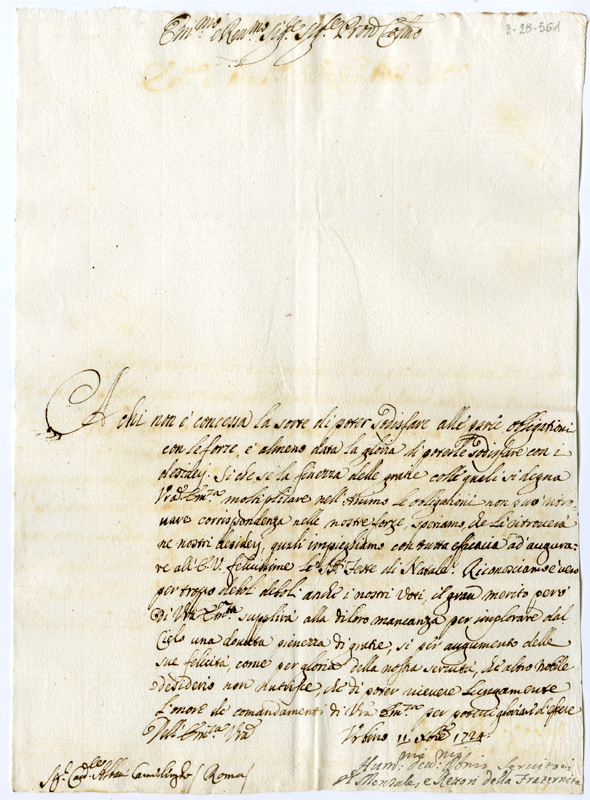 Em.mo e Rev.mo Sig.re Sig.re Pron Col.mo
3-28-56A
A chi non é concessa la sorte di poter sodisfare alle parie obligationi
con le forze, é almeno data la gloria di poterle sodisfare con i
desiderj. Si che se la finezza delle gratie colle quali si degna
V.ra Em.za moltiplicare nell' animo le obligationi non può ritro-
uare correspondenza nelle nostre forze, speriamo, che la ritrouerà
ne nostri desiderj, quali impieghiamo con tutta efficacia ad augura-
re all' E.V. felicissime le S.te Feste di Natale. Riconosciamo é uero
per tropo debol debol' anche i nostri Voti il gran merito però
di V.ra Em.za supplirà alla di loro mancanza per implorare dal
Cielo una douuta pienezza di gratie, si per augumento delle
sue felicità, come per gloria della nostra seruitù, ch' altro nobile
desiderio non nutrisce, che di poter riceuere lungamente
l'onore de comandamenti di V.ra Em.za per poterci gloriar d'essere
Dell' Em.za V.ra Urbino 11 Xbre 1724
Hum.mi Deu.mi Seruitori
e Rettori della Fraternita
Sig. Card.le Albani Camerlengo / Roma /